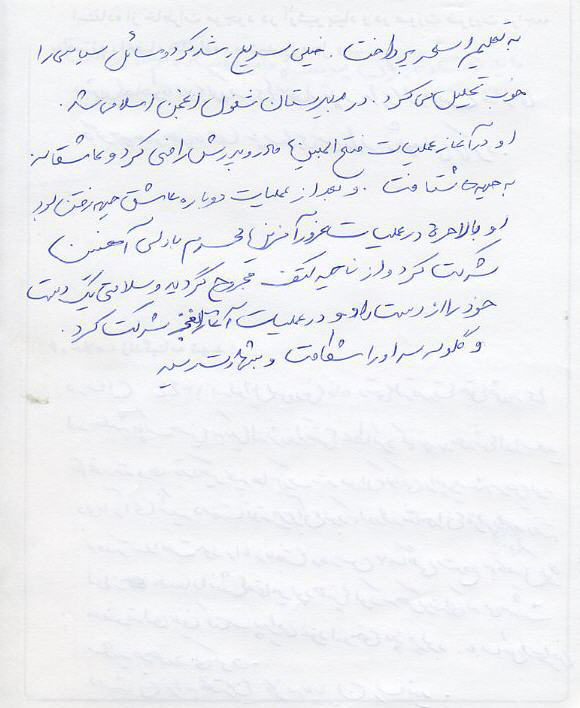 به تعلیم اسلحه پرداخت. خیلی سریع رشد کرد و مسائل سیاسی را
خوب تحلیل می کرد. در دبیرستان مشغول انجمن اسلامی شد.
او در آغاز عملیات فتح المبین مادر و پدرش راضی کرد و عاشقانه
به جبهه ها شتافت. و بعد از عملیات دوباره عاشق جبهه رفتن بود
او بالاخره در عملیات محرم با دلی آهنین
شرکت کرد و از ناحیه کتف مجروح گردید و سلامتی یک دست
خود را از دست داد و در عملیات والفجر شرکت کرد.
و گلوله سر او را شکافت و بشهادت رسید